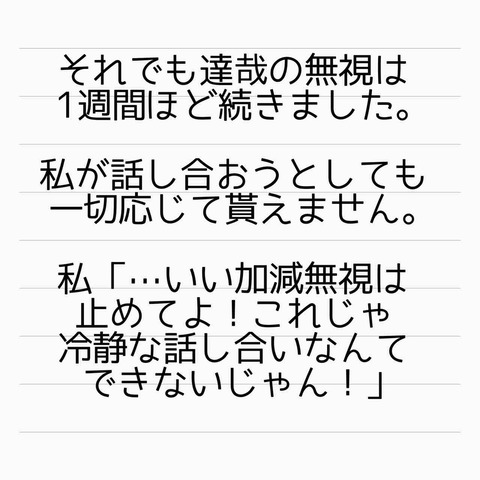 それでも達哉の無視は
1週間ほど続きました。
私が話し合おうとしても
一切応じて貰えません。
私「…いい加減無視は
止めてよ！これじゃ
冷静な話し合いなんて
できないじゃん！」